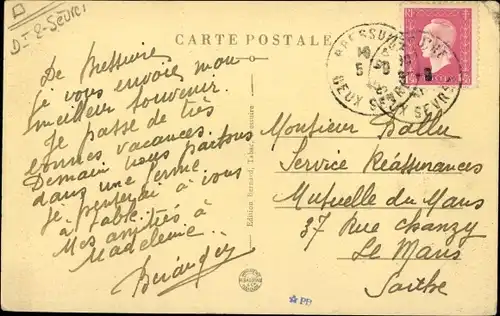 D-2-Sèvres
CARTE POSTALE
De Bressuire
je vous envoie mon
meilleur souvenir.
Je passe de très
bonnes vacances.
Demain nous partons
dans une ferme
Je penserai à vous
à table.
Mes amitiés à
Madeleine.
BRESSUIRE
DEUX SEVRES
Monsieur Dallu
Service Réassurances
Mutuelle du Mans
37 Rue Chanzy
Le Mans
Sarthe
PP